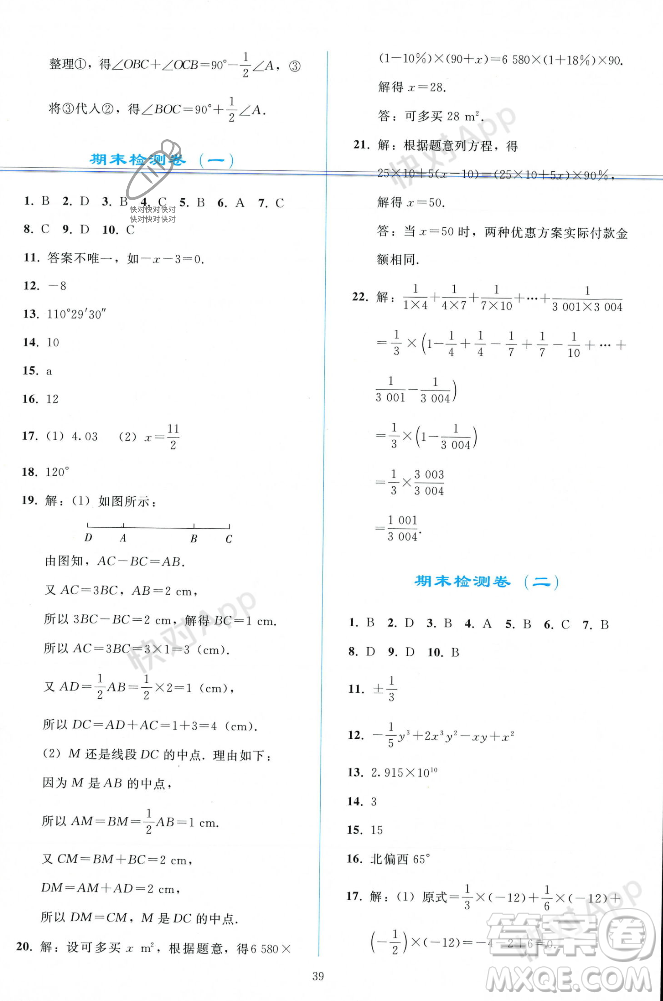 整理①，得∠OBC＋∠OCB＝90°－1/2∠A，③
将③代入②，得∠BOC＝90°＋1/2∠A.
期末检测卷（一）
1. B 2. D 3. B 4. C 5. B 6. A 7. C
8. C 9. D 10. C
11. 答案不唯一，如－x－3＝0.
12. －8
13. 110°29′30″
14. 10
15. a
16. 12
17. (1) 4.03 (2) x＝11/2
18. 120°
19. 解：(1) 如图所示：
D A B C
由图知，AC－BC＝AB.
又 AC＝3BC，AB＝2 cm，
所以 3BC－BC＝2 cm，解得 BC＝1 cm，
所以 AC＝3BC＝3×1＝3（cm）.
又 AD＝1/2AB＝1/2×2＝1（cm），
所以 DC＝AD＋AC＝1＋3＝4（cm）.
(2) M 还是线段 DC 的中点. 理由如下：
因为 M 是 AB 的中点，
所以 AM＝BM＝1/2AB＝1 cm，
又 CM＝BM＋BC＝2 cm，
DM＝AM＋AD＝2 cm，
所以 DM＝CM，即 M 是 DC 的中点.
20. 解：设可多买 x m²，根据题意，得 6 580×
(1－10%)×(90＋x)＝6 580×(1＋18%)×90.
解得 x＝28.
答：可多买 28 m².
21. 解：根据题意列方程，得
25×10＋5(x－10)＝(25×10＋5x)×90%，
解得 x＝50.
答：当 x＝50 时，两种优惠方案实际付款金
额相同.
22. 解：1/(1×4)＋1/(4×7)＋1/(7×10)＋…＋1/(3 001×3 004)
＝1/3×(1－1/4＋1/4－1/7＋1/7－1/10＋…＋
1/3 001－1/3 004)
＝1/3×(1－1/3 004)
＝1/3×3 003/3 004
＝1 001/3 004.
期末检测卷（二）
1. B 2. D 3. B 4. A 5. C 6. C 7. B
8. D 9. D 10. B
11. ±1/3
12. －1/5y³＋2x³y²－xy＋x²
13. 2.915×10¹⁰
14. 3
15. 15
16. 北偏西 65°
17. 解：(1) 原式＝1/3×(－12)＋1/6×(－12)＋
(－1/2)×(－12)＝－4－2＋6＝0.
39
快对App
快对App
快对App
快对App
快对快对快对
快对快对快对
答案圈
MXQE.COM